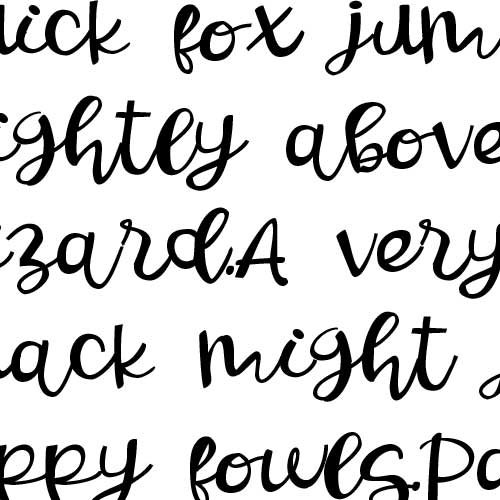 uick fox jum
ightly above
izard.A very
ack might j
ppy fowls.Pa